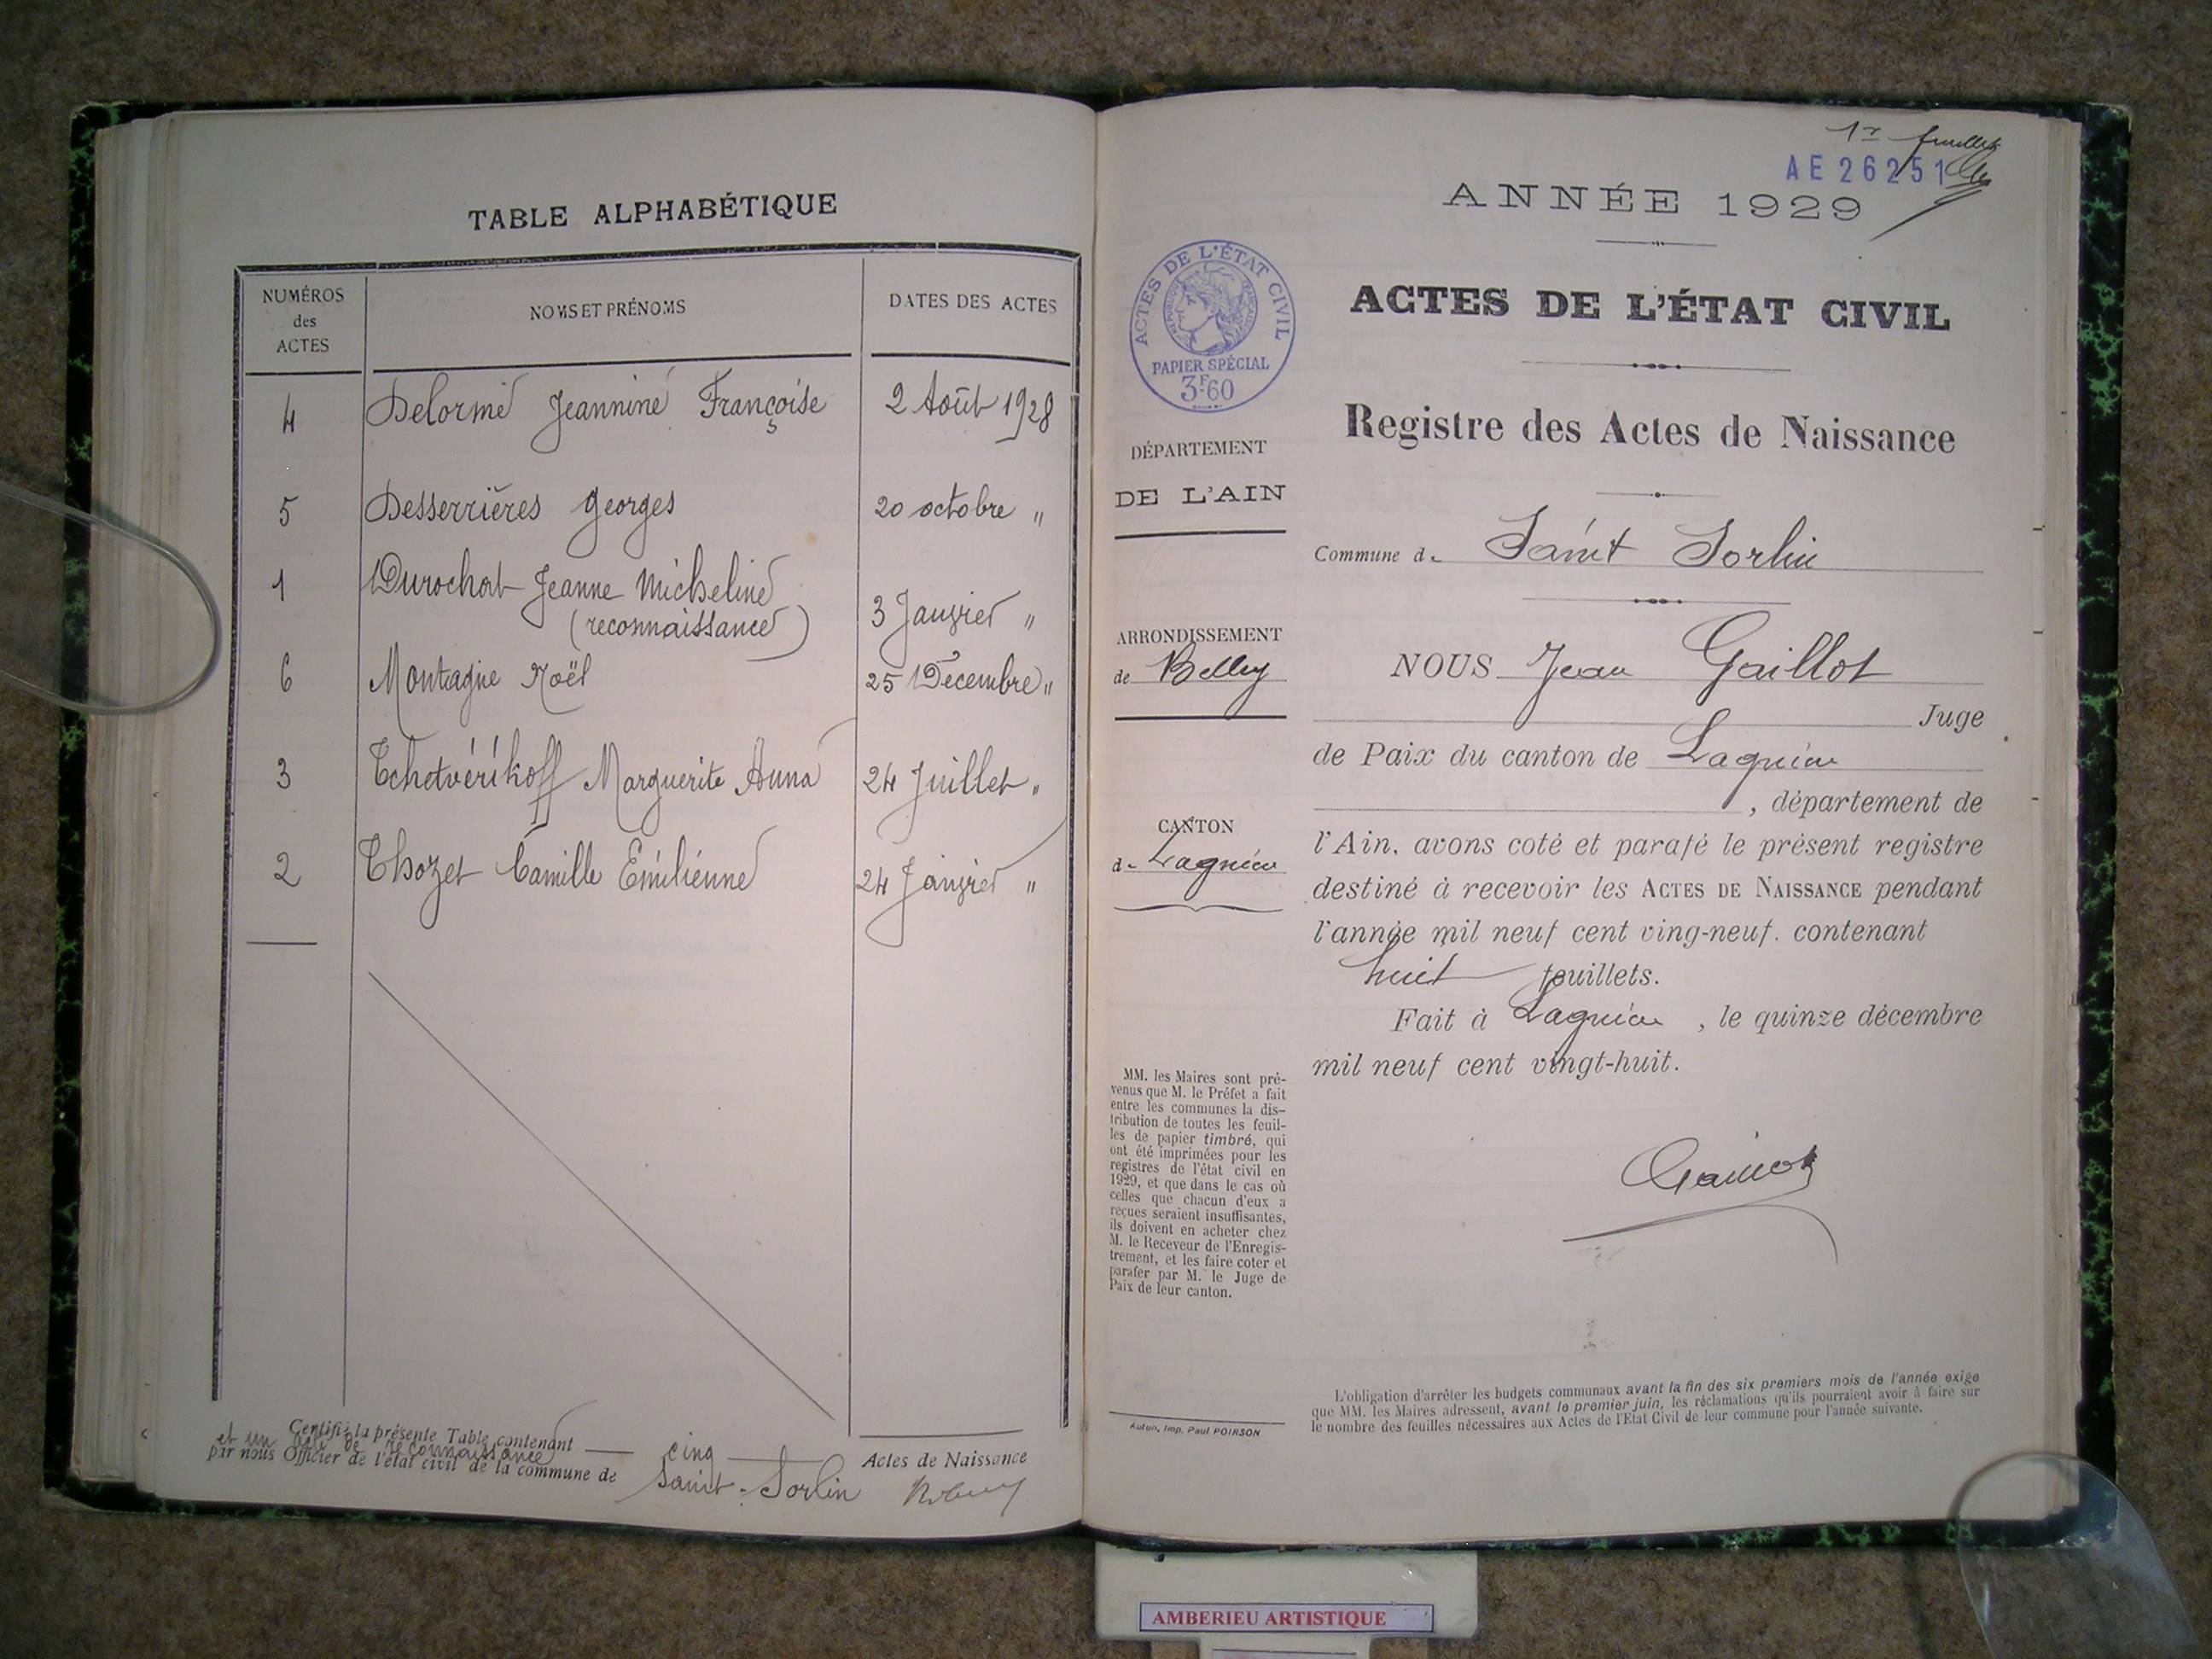 TABLE ALPHABÉTIQUE
NUMÉROS des ACTES
NOMS ET PRÉNOMS
DATES DES ACTES
4 Delorme Jeannine Françoise 2 Août 1928
5 Desserrières Georges 20 octobre "
1 Durochat Jeanne Micheline
(reconnaissance) 3 Janvier "
6 Montagne Noël 25 Décembre "
3 Tchetvérikoff Marguerite Anna 24 Juillet "
2 Thozet Camille Emilienne 24 Janvier "
Certifié la présente Table contenant cinq Actes de Naissance
et un acte de reconnaissance
par nous Officier de l'état civil de la commune de Saint-Sorlin
1er feuillet
AE 26251
ANNÉE 1929
ACTES DE L'ÉTAT CIVIL
RÉPUBLIQUE FRANÇAISE
PAPIER SPÉCIAL
3F60
ACTES DE L'ÉTAT CIVIL
Registre des Actes de Naissance
DÉPARTEMENT
DE L'AIN
Commune de Saint Sorlin
ARRONDISSEMENT
de Belley
CANTON
de Lagnieu
NOUS Jean Gaillot
Juge
de Paix du canton de Lagnieu
, département de
l'Ain, avons coté et parafé le présent registre
destiné à recevoir les ACTES DE NAISSANCE pendant
l'année mil neuf cent ving-neuf. contenant
huit feuillets.
Fait à Lagnieu , le quinze décembre
mil neuf cent vingt-huit.
Gaillot
MM. les Maires sont pré-
venus que M. le Préfet a fait
entre les communes la dis-
tribution de toutes les feuil-
les de papier timbré, qui
ont été imprimées pour les
registres de l'état civil en
1929, et que dans le cas où
celles que chacun d'eux a
reçues seraient insuffisantes,
ils doivent en acheter chez
M. le Receveur de l'Enregis-
trement, et les faire coter et
parafer par M. le Juge de
Paix de leur canton.
Autun, Imp. Paul POIRSON
L'obligation d'arrêter les budgets communaux avant la fin des six premiers mois de l'année exige
que MM. les Maires adressent, avant le premier juin, les réclamations qu'ils pourraient avoir à faire sur
le nombre des feuilles nécessaires aux Actes de l'Etat Civil de leur commune pour l'année suivante.
AMBERIEU ARTISTIQUE